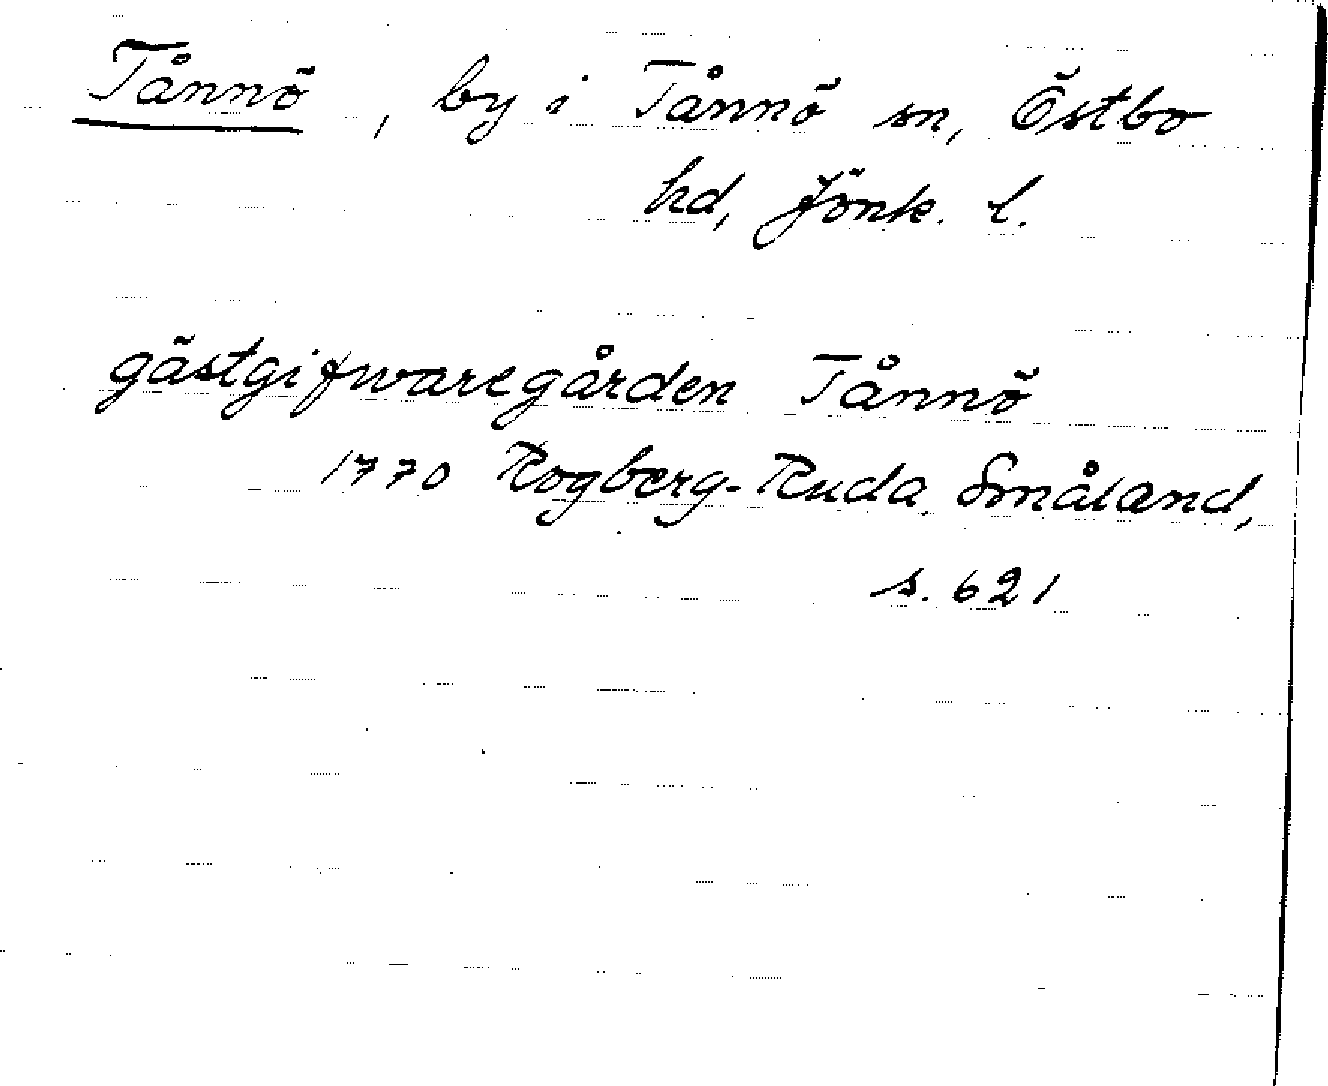 Tånnö, by i Tånnö sn, Östbo
hd, Jönk. l.
gästgifwaregården Tånnö
1770 Rogberg-Ruda, Småland,
s. 621